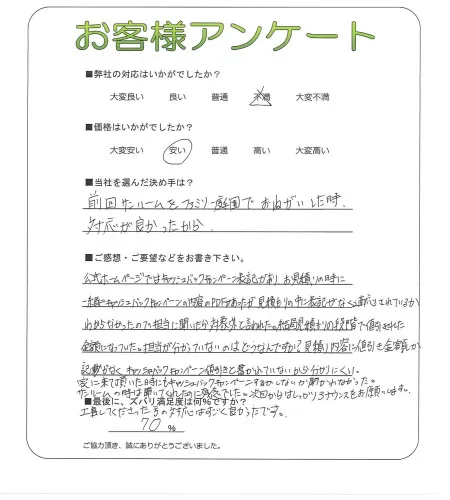 お客様アンケート
■弊社の対応はいかがでしたか?
大変良い 良い 普通 不満 大変不満
■価格はいかがでしたか?
大変安い 安い 普通 高い 大変高い
■当社を選んだ決め手は?
前回サンルームをファミリー庭園でおねがいした時、
対応が良かったから。
■ご感想・ご要望などをお書き下さい。
公式ホームページではキャッシュバックキャンペーン表記があり、お見積りの時に
一緒にキャッシュバックキャンペーンの内容のPDFがあったが見積りの中に表記がなく適応されているか
わからなかったので担当に聞いたら対象外と言われた。結局見積りの段階で値引きされた
金額になっていた。担当が分かっていないのはどうなんですか?見積り内容に値引き金額が
記載がなくキャッシュバックキャンペーン値引きと書かれていないから分かりにくい。
家に来て頂いた時にもキャッシュバックキャンペーンするかしないか聞かれなかった。
サンルームの時は聞いてくれたのに残念でした。次回からはしっかりメンテナンスをお願いします。
■最後に、ズバリ満足度は何%ですか?
工事してくださった方の対応はすごく良かったです。
70 %
ご協力頂き、誠にありがとうございました。